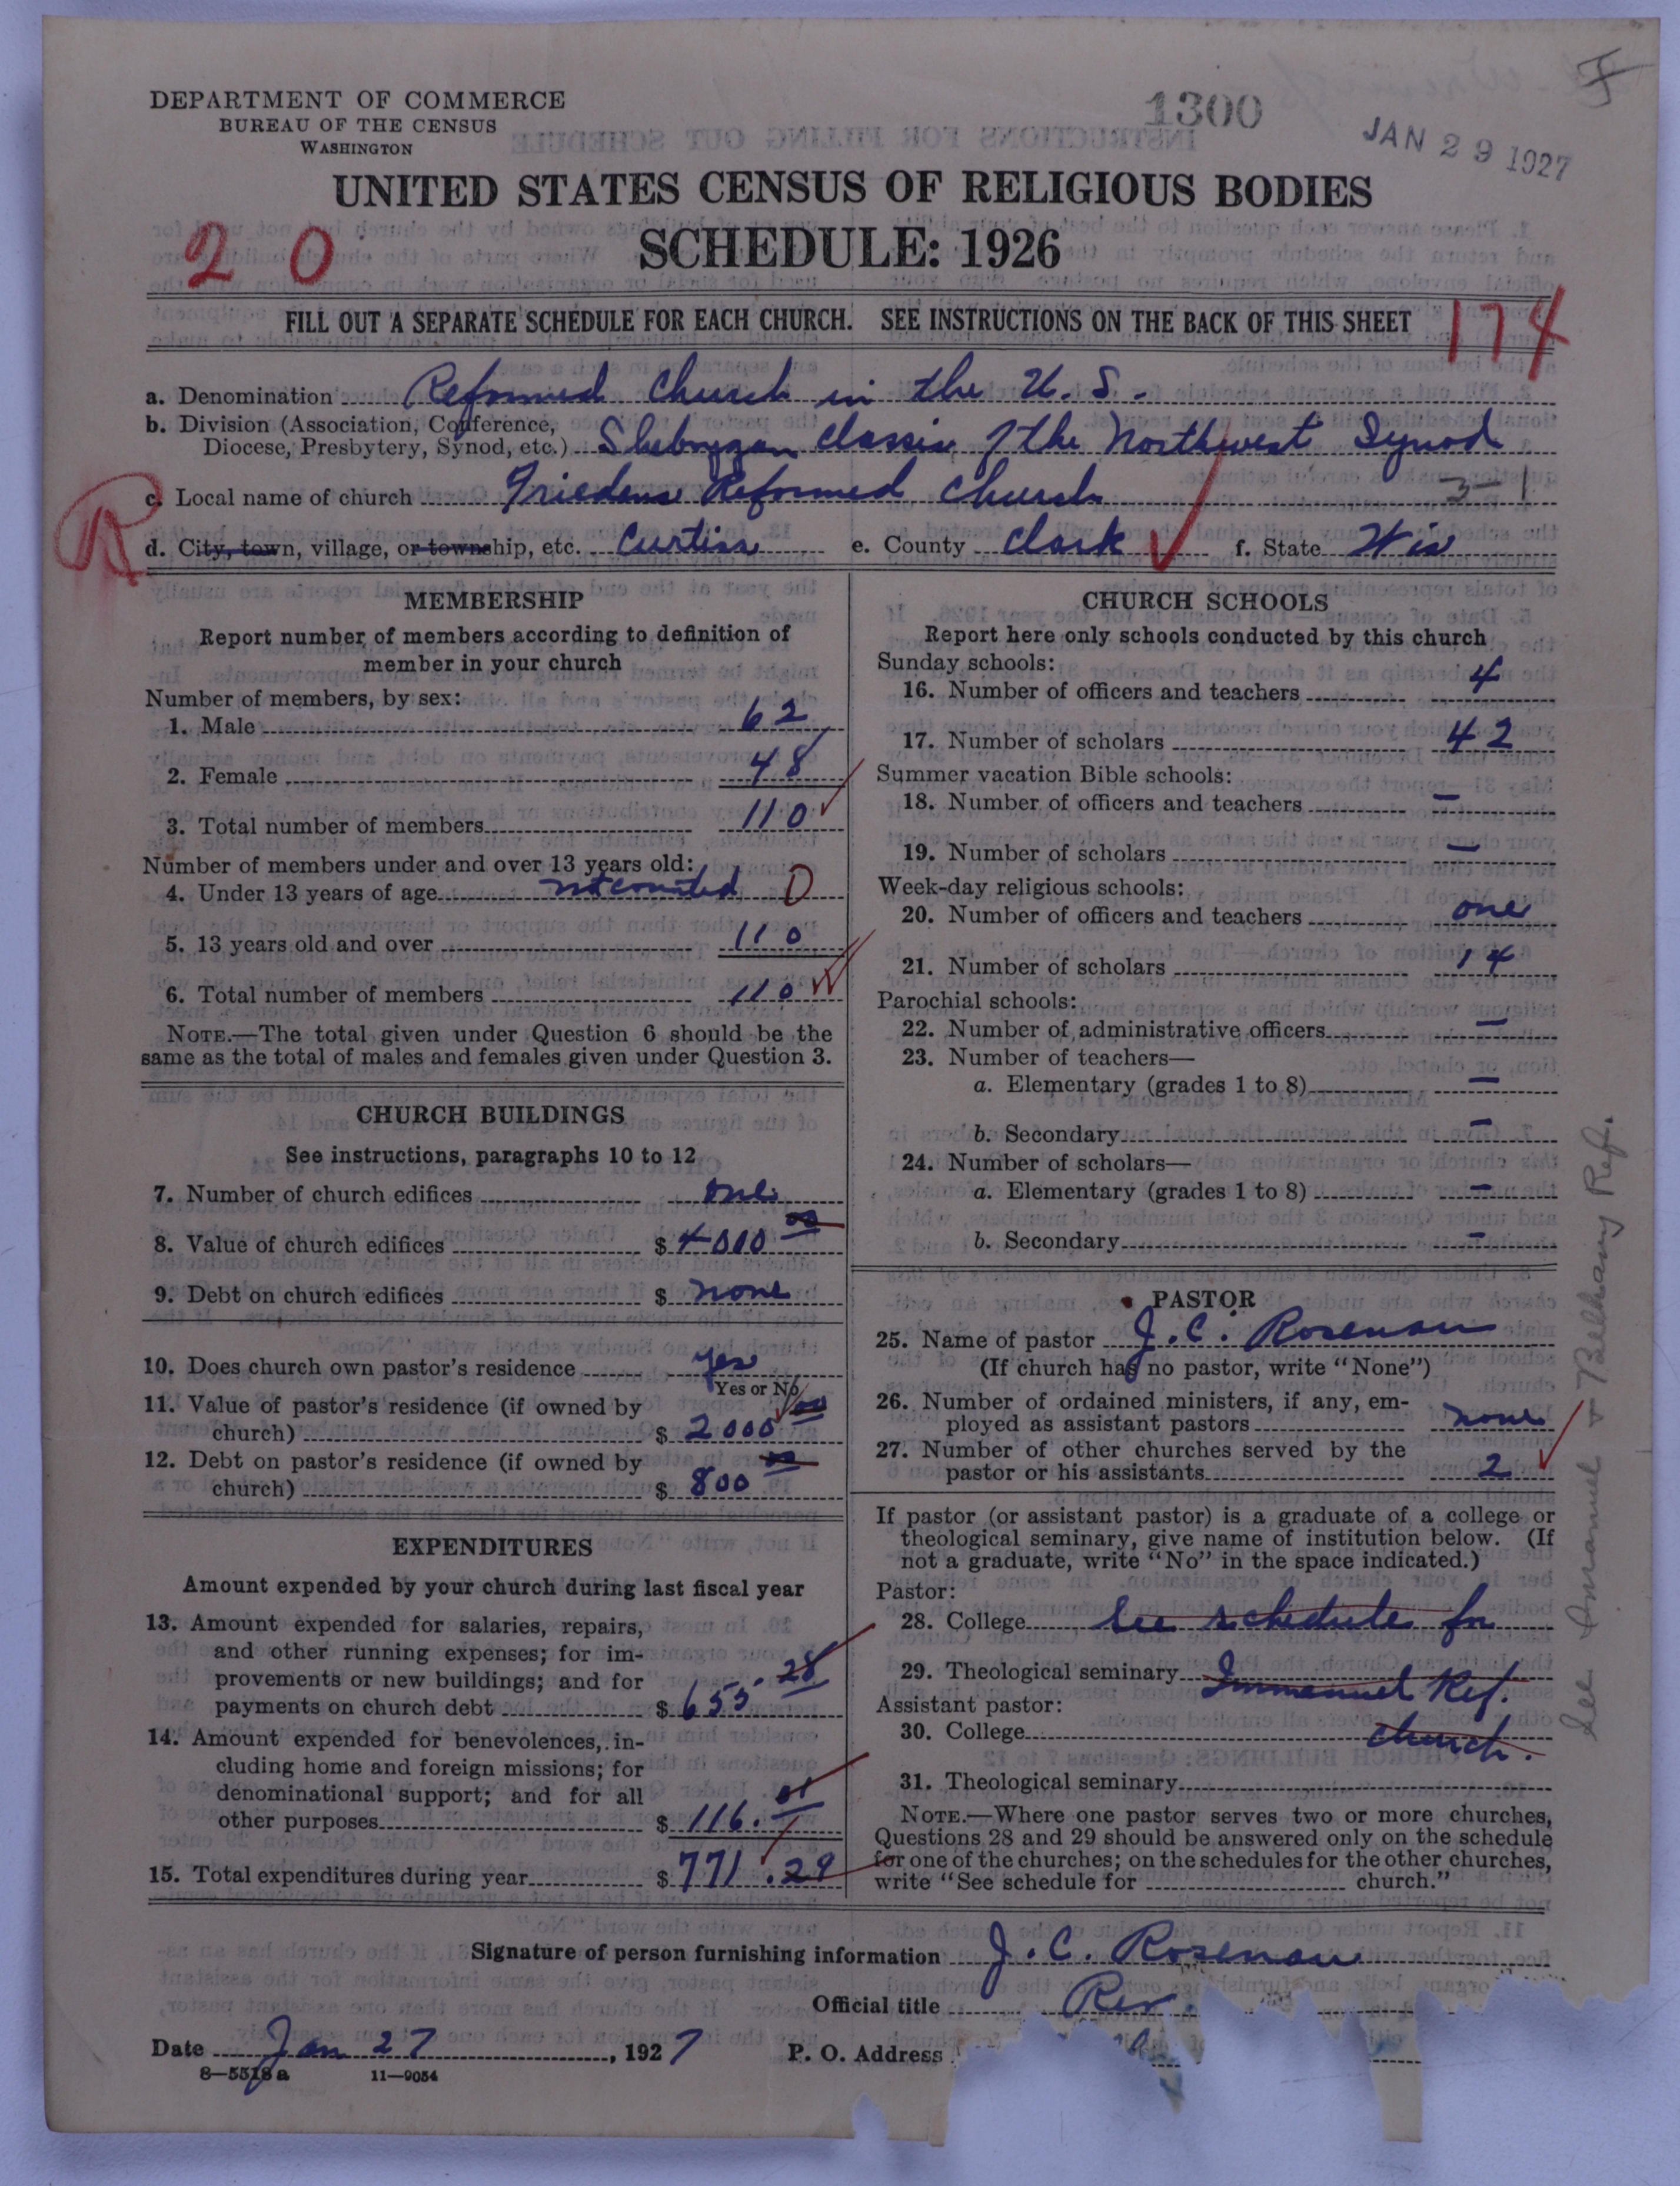 DEPARTMENT OF COMMERCE
BUREAU OF THE CENSUS
WASHINGTON
1300
JAN 29 1927
UNITED STATES CENSUS OF RELIGIOUS BODIES
SCHEDULE: 1926
2 0
FILL OUT A SEPARATE SCHEDULE FOR EACH CHURCH. SEE INSTRUCTIONS ON THE BACK OF THIS SHEET
174
a. Denomination Reformed Church in the U. S.
b. Division (Association, Conference,
Diocese, Presbytery, Synod, etc.) Sheboygan Classis of the Northwest Synod
c. Local name of church Friedens Reformed Church
R
d. City, town, village, or township, etc. Curtiss e. County Clark f. State Wis
MEMBERSHIP
Report number of members according to definition of
member in your church
Number of members, by sex:
1. Male 62
2. Female 48
3. Total number of members 110
Number of members under and over 13 years old:
4. Under 13 years of age not counted 0
5. 13 years old and over 110
6. Total number of members 110
NOTE.—The total given under Question 6 should be the
same as the total of males and females given under Question 3.
CHURCH BUILDINGS
See instructions, paragraphs 10 to 12
7. Number of church edifices one
8. Value of church edifices $ 4000 00
9. Debt on church edifices $ none
10. Does church own pastor's residence yes
Yes or No
11. Value of pastor's residence (if owned by
church) $ 2000 00
12. Debt on pastor's residence (if owned by
church) $ 800 00
EXPENDITURES
Amount expended by your church during last fiscal year
13. Amount expended for salaries, repairs,
and other running expenses; for im-
provements or new buildings; and for
payments on church debt $ 655.28
14. Amount expended for benevolences, in-
cluding home and foreign missions; for
denominational support; and for all
other purposes $ 116.01
15. Total expenditures during year $ 771.29
CHURCH SCHOOLS
Report here only schools conducted by this church
Sunday schools:
16. Number of officers and teachers 4
17. Number of scholars 42
Summer vacation Bible schools:
18. Number of officers and teachers —
19. Number of scholars —
Week-day religious schools:
20. Number of officers and teachers one
21. Number of scholars 14
Parochial schools:
22. Number of administrative officers —
23. Number of teachers—
a. Elementary (grades 1 to 8) —
b. Secondary —
24. Number of scholars—
a. Elementary (grades 1 to 8) —
b. Secondary —
PASTOR
25. Name of pastor J. C. Rosenau
(If church has no pastor, write "None")
26. Number of ordained ministers, if any, em-
ployed as assistant pastors none
27. Number of other churches served by the
pastor or his assistants 2
If pastor (or assistant pastor) is a graduate of a college or
theological seminary, give name of institution below. (If
not a graduate, write "No" in the space indicated.)
Pastor:
28. College See schedule for
29. Theological seminary Immanuel Ref.
Assistant pastor:
30. College church.
31. Theological seminary
NOTE.—Where one pastor serves two or more churches,
Questions 28 and 29 should be answered only on the schedule
for one of the churches; on the schedules for the other churches,
write "See schedule for church."
See Immanuel & Bethany Ref.
Signature of person furnishing information J. C. Rosenau
Official title Rev.
Date Jan 27, 1927 P. O. Address
8—5518a 11—9054